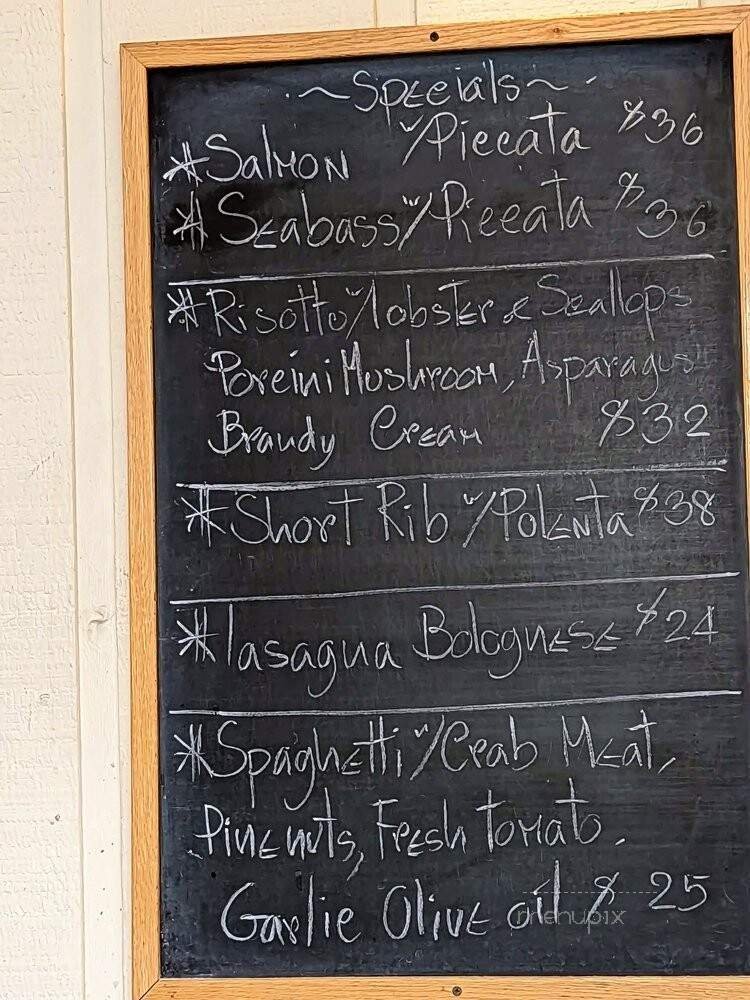 ~Specials~
*Salmon w/Piccata $36
*Seabass w/Piccata $36
*Risotto w/lobster & Scallops
Porcini Mushroom, Asparagus
Brandy Cream $32
*Short Rib w/Polenta $38
*lasagna Bolognese $24
*Spaghetti w/Crab Meat,
Pine nuts, Fresh tomato.
Garlic Olive oil $25
menupix